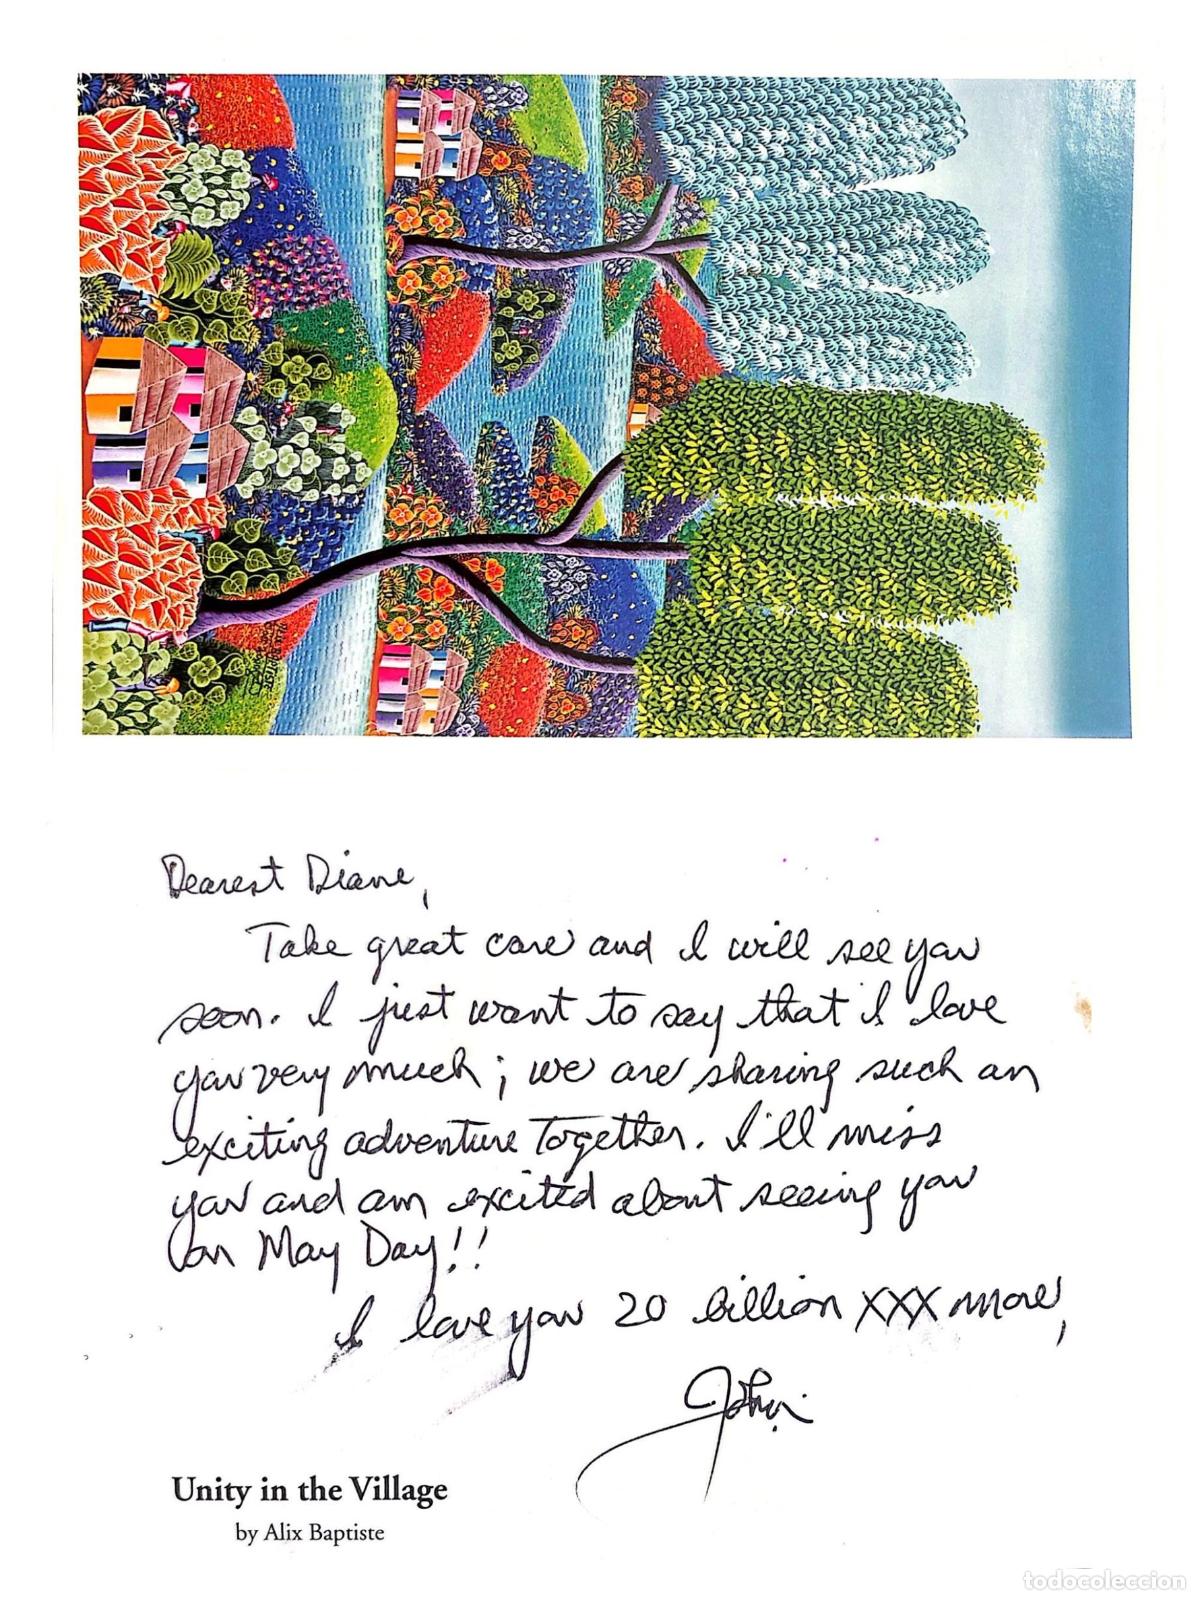 Dearest Diane,
Take great care and I will see you
soon. I just want to say that I love
you very much; we are sharing such an
exciting adventure together. I'll miss
you and am excited about seeing you
on May Day!!
I love you 20 billion XXX more,
John
Unity in the Village
by Alix Baptiste
todocoleccion